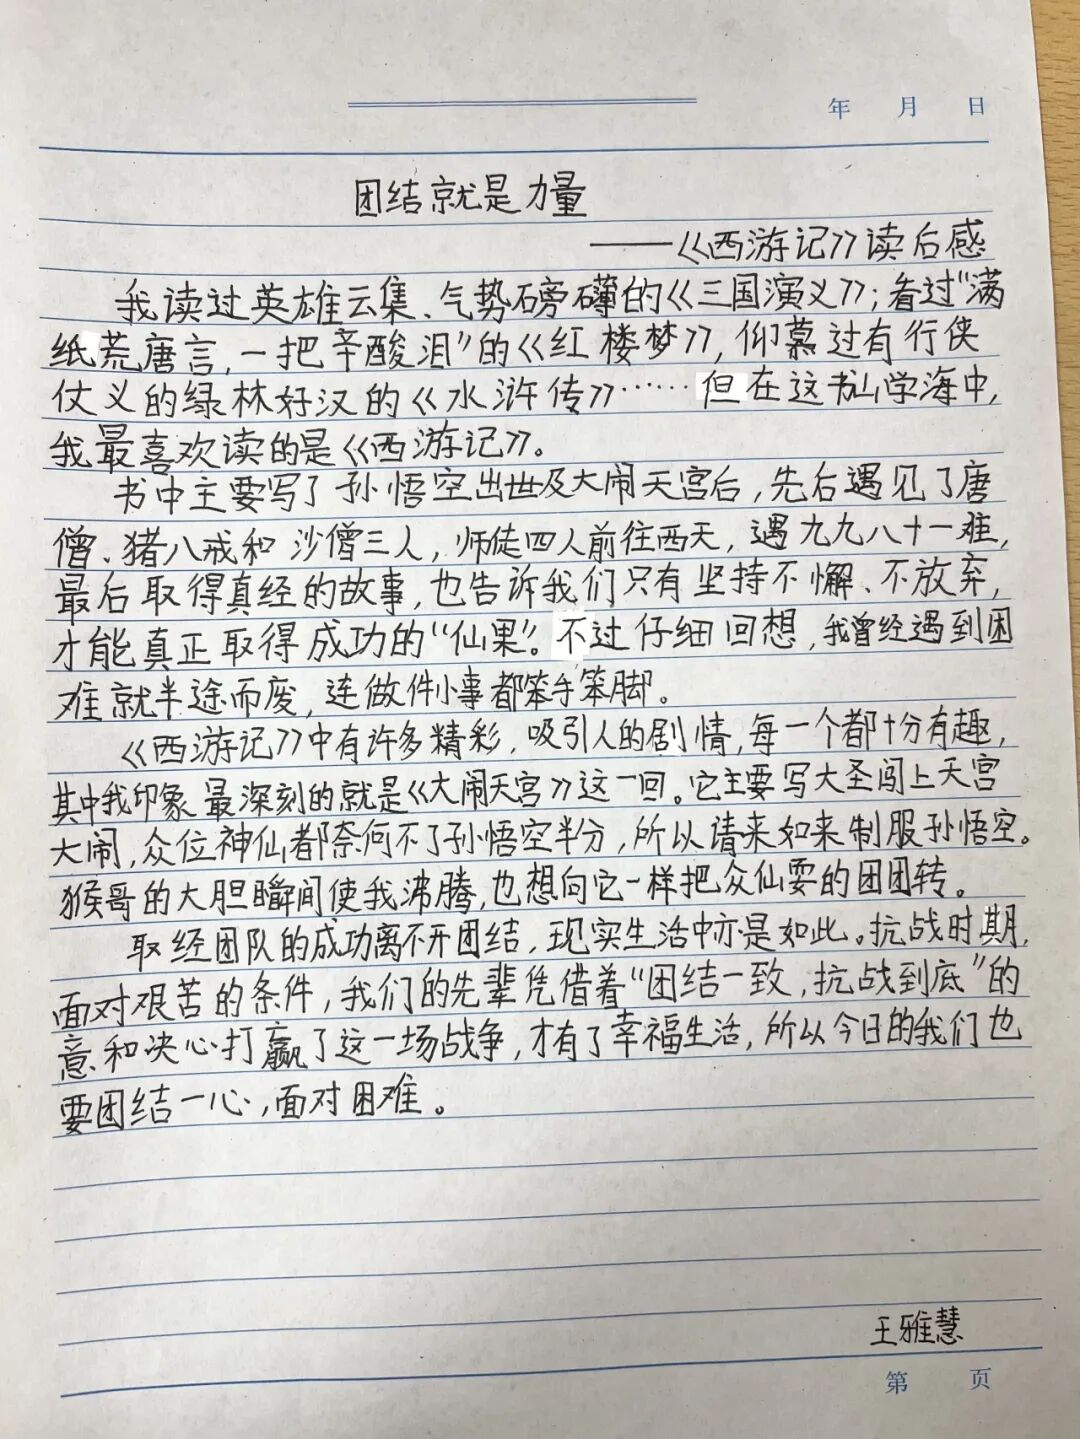 年 月 日
团结就是力量
——《西游记》读后感
我读过英雄云集、气势磅礴的《三国演义》；看过“满
纸荒唐言，一把辛酸泪”的《红楼梦》，仰慕过有行侠
仗义的绿林好汉的《水浒传》……但在这书山学海中，
我最喜欢读的是《西游记》。
书中主要写了孙悟空出世及大闹天宫后，先后遇见了唐
僧、猪八戒和沙僧三人，师徒四人前往西天，遇九九八十一难，
最后取得真经的故事，也告诉我们只有坚持不懈、不放弃，
才能真正取得成功的“仙果”。不过仔细回想，我曾经遇到困
难就半途而废，连做件小事都笨手笨脚。
《西游记》中有许多精彩，吸引人的剧情，每一个都十分有趣，
其中我印象最深刻的就是《大闹天宫》这一回。它主要写大圣闯上天宫
大闹，众位神仙都奈何不了孙悟空半分，所以请来如来制服孙悟空。
猴哥的大胆瞬间使我沸腾，也想向它一样把众仙耍的团团转。
取经团队的成功离不开团结，现实生活中亦是如此。抗战时期，
面对艰苦的条件，我们的先辈凭借着“团结一致，抗战到底”的
意和决心打赢了这一场战争，才有了幸福生活，所以今日的我们也
要团结一心，面对困难。
王雅慧
第 页